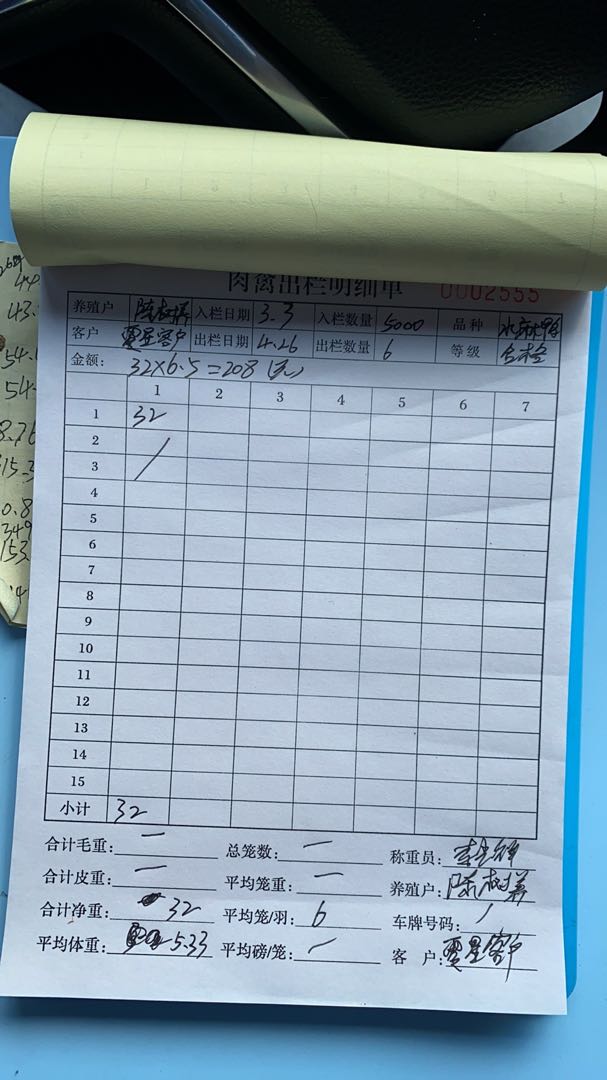 肉禽出栏明细单 0002555
养殖户 入栏日期 3.3 入栏数量 5000 品种
客户 零星客户 出栏日期 4.26 出栏数量 6 等级 合格
金额: 32×6.5=208(元)
1 2 3 4 5 6 7
1 32
2
3
4
5
6
7
8
9
10
11
12
13
14
15
小计 32
合计毛重: — 总笼数: — 称重员:
合计皮重: — 平均笼重: — 养殖户:
合计净重: 32 平均笼/羽: 6 车牌号码: /
平均体重: 5.33 平均磅/笼: — 客 户: 零星客户